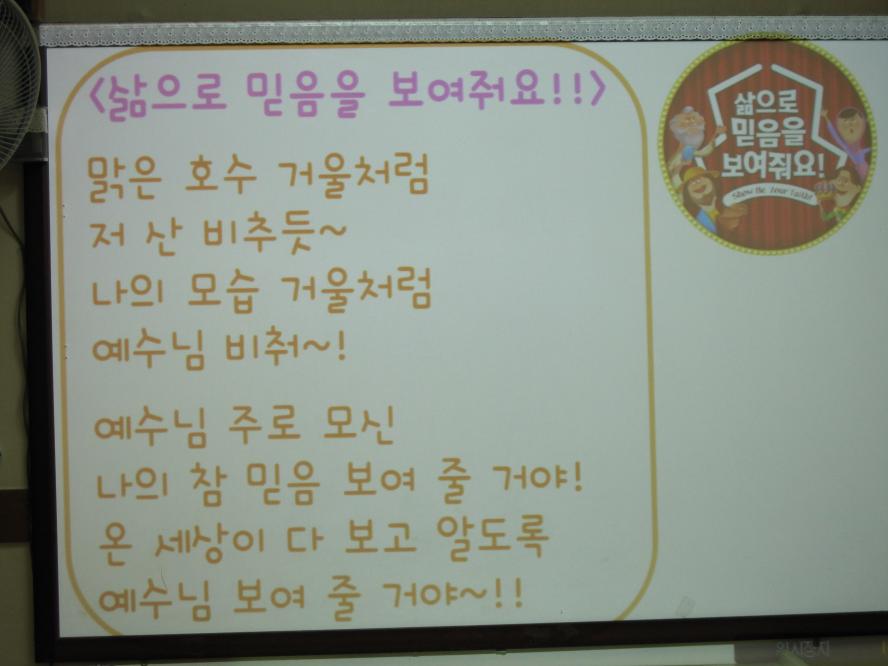 <삶으로 믿음을 보여줘요!!>
맑은 호수 거울처럼
저 산 비추듯~
나의 모습 거울처럼
예수님 비춰~!
예수님 주로 모신
나의 참 믿음 보여 줄 거야!
온 세상이 다 보고 알도록
예수님 보여 줄 거야~!!
삶으로
믿음을
보여줘요!
Show Me Your Faith!